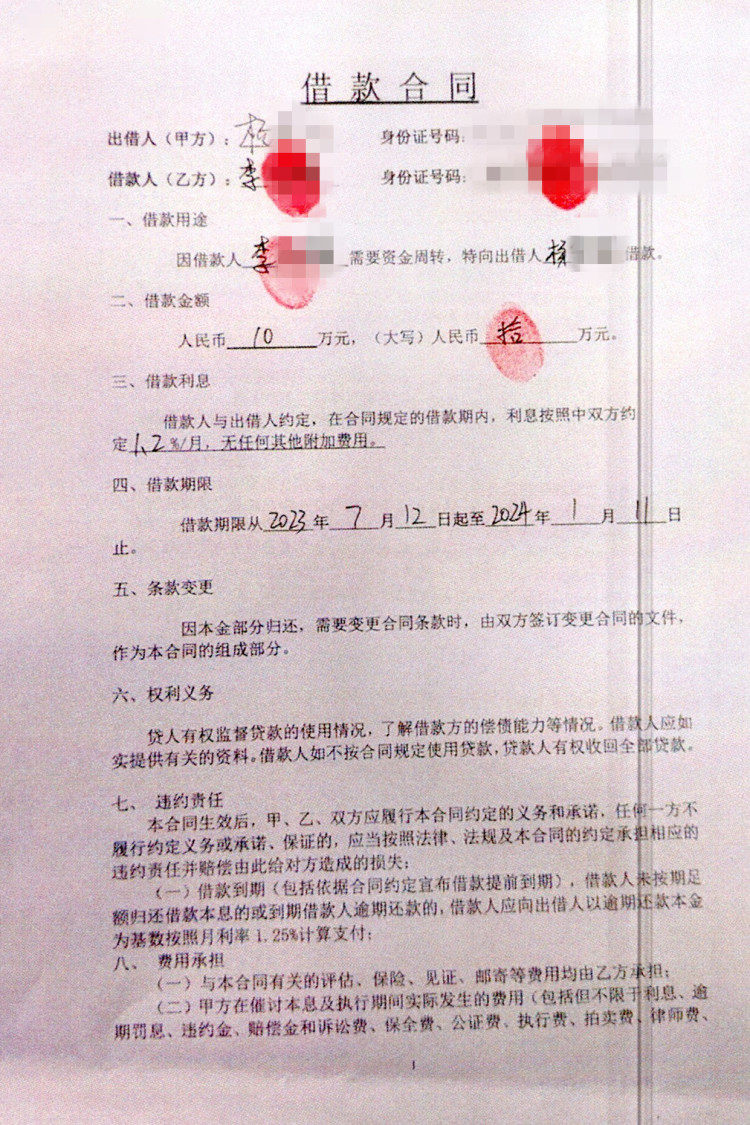 借款合同
出借人（甲方）： 身份证号码：
借款人（乙方）：李 身份证号码：
一、借款用途
因借款人李 需要资金周转，特向出借人杨 借款。
二、借款金额
人民币 10 万元，（大写）人民币 拾 万元。
三、借款利息
借款人与出借人约定，在合同规定的借款期内，利息按照中双方约
定1.2%/月，无任何其他附加费用。
四、借款期限
借款期限从2023年 7 月 12 日起至2024年 1 月 11 日
止。
五、条款变更
因本金部分归还，需要变更合同条款时，由双方签订变更合同的文件，
作为本合同的组成部分。
六、权利义务
贷人有权监督贷款的使用情况，了解借款方的偿债能力等情况。借款人应如
实提供有关的资料。借款人如不按合同规定使用贷款，贷款人有权收回全部贷款。
七、违约责任
本合同生效后，甲、乙、双方应履行本合同约定的义务和承诺，任何一方不
履行约定义务或承诺、保证的，应当按照法律、法规及本合同的约定承担相应的
违约责任并赔偿由此给对方造成的损失：
（一）借款到期（包括依据合同约定宣布借款提前到期），借款人未按期足
额归还借款本息的或到期借款人逾期还款的，借款人应向出借人以逾期还款本金
为基数按照月利率1.25%计算支付；
八、费用承担
（一）与本合同有关的评估、保险、见证、邮寄等费用均由乙方承担；
（二）甲方在催讨本息及执行期间实际发生的费用（包括但不限于利息、逾
期罚息、违约金、赔偿金和诉讼费、保全费、公证费、执行费、拍卖费、律师费、
1